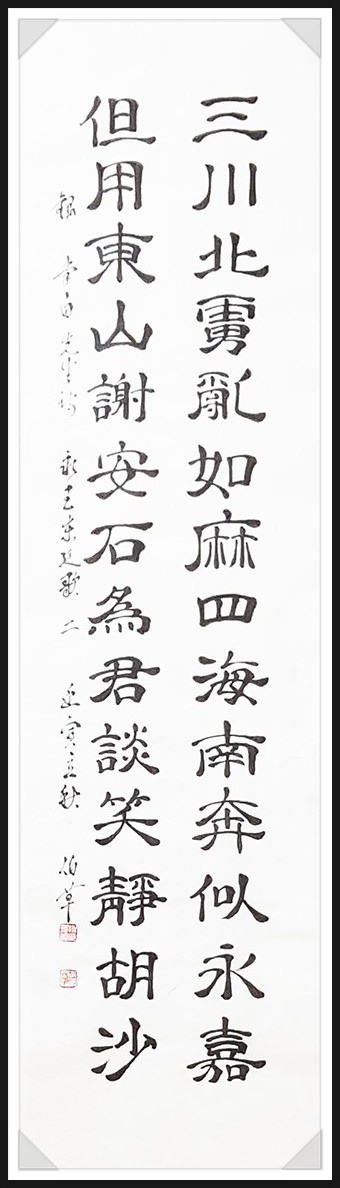 三川北虜亂如麻四海南奔似永嘉
但用東山謝安石為君談笑靜胡沙
錄 李白先生詩 永王東巡歌 二 壬寅立秋